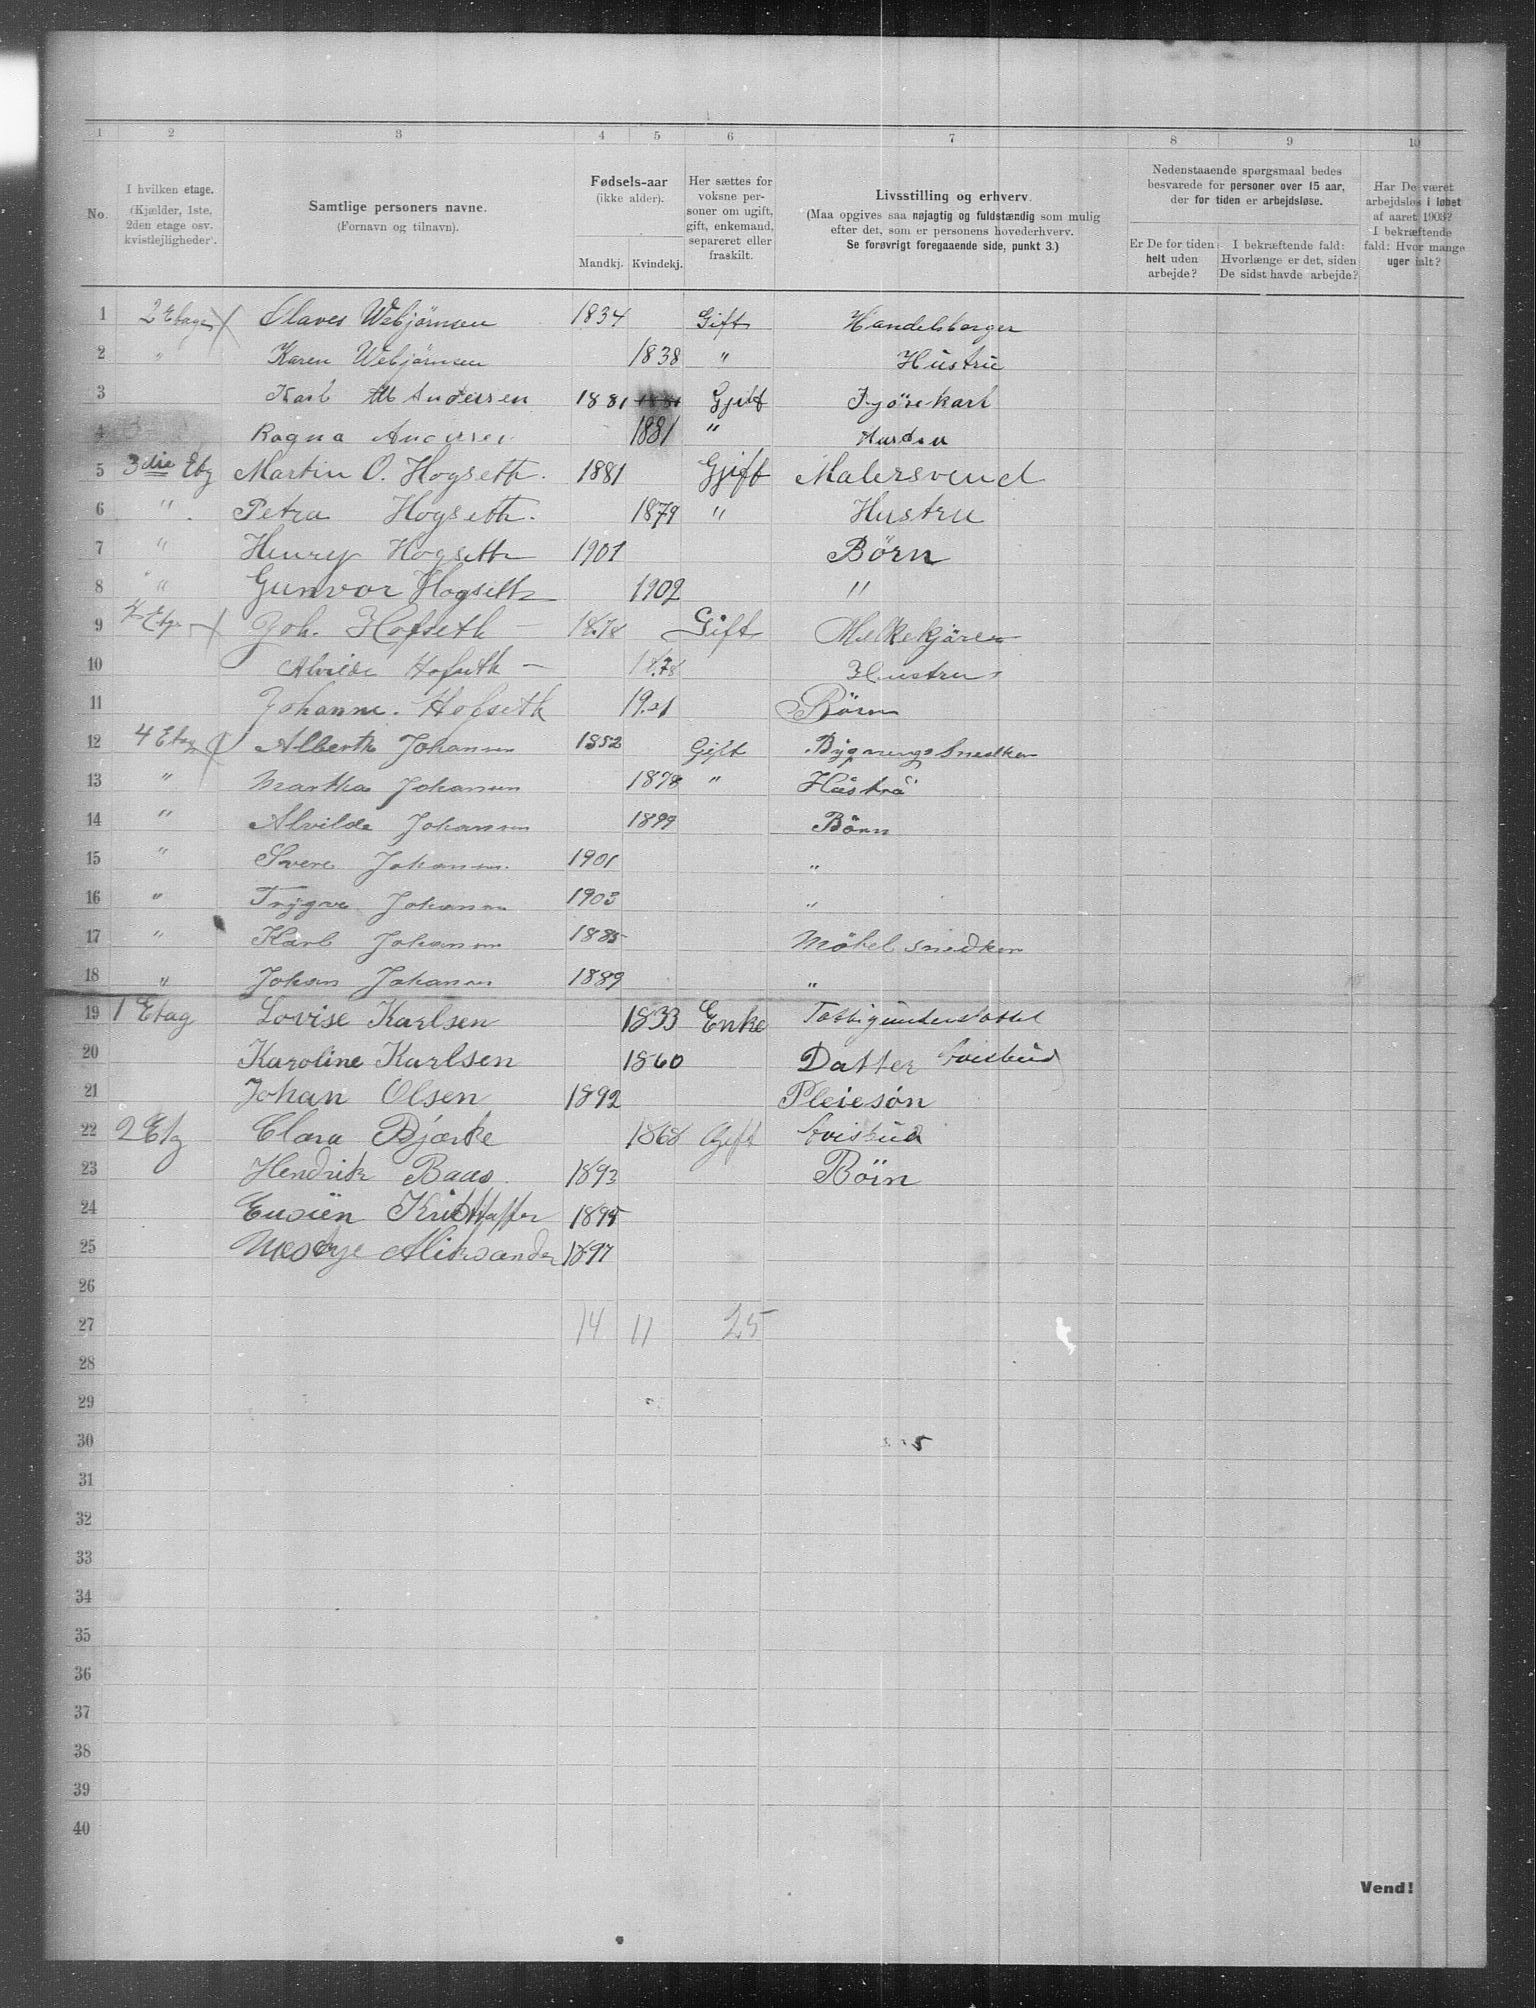 1 2 3 4 5 6 7 8 9 10
No.
I hvilken etage.
(Kjælder, 1ste, 2den etage osv. kvistlejligheder).
Samtlige personers navne.
(Fornavn og tilnavn).
Fødsels-aar
(ikke alder).
Mandkj. Kvindekj.
Her sættes for voksne personer om ugift, gift, enkemand, separeret eller fraskilt.
Livsstilling og erhverv.
(Maa opgives saa nøjagtig og fuldstændig som mulig
efter det, som er personens hovederhverv.
Se forøvrigt foregaaende side, punkt 3.)
Nedenstaaende spørgsmaal bedes
besvarede for personer over 15 aar,
der for tiden er arbejdsløse.
Er De for tiden helt uden arbejde?
I bekræftende fald: Hvorlænge er det, siden De sidst havde arbejde?
Har De været arbejdsløs i løbet af aaret 1903? I bekræftende fald: Hvor mange uger ialt?
1 2 Etage Olaves Webjørnsen 1834 Gift Handelsborger
2 " Karen Webjørnsen 1838 " Hustru
3 Karl M Andersen 1881 1881 Gjift Kjørekarl
4 Ragna Andersen 1881 "
5 3die Etg Martin O. Hogseth. 1881 Gjift Malersvend
6 " Petra Hogseth. 1879 " Hustru
7 " Henry Hogseth 1901 Børn
8 " Gunvor Hogseth 1902 "
9 Etg. Joh. Hofseth 1878 Gift Melkekjører
10 Alvilde Hofseth 1878 Hustru
11 Johanne. Hofseth 1901 Børn
12 4 Etag Alberth Johansen 1852 Gift Bygnings Snedker
13 " Martha Johansen 1878 " Hustru
14 " Alvilde Johansen 1899 Børn
15 " Svere Johansen 1901 "
16 " Trygve Johansen 1903 "
17 " Karl Johansen 1885 Møbel snedker
18 " Johan Johansen 1889 "
19 1 Etag Lovise Karlsen 1833 Enke
20 Karoline Karlsen 1860 Datter Avisbud
21 Johan Olsen 1892 Pleiesøn
22 2 Etg Clara Bjærke 1868 Gift Avisbud
23 Hendrik Baas. 1893 Børn
24 1895
25 1897
26
27 14 11 25
28
29
30
31
32
33
34
35
36
37
38
39
40
Vend!